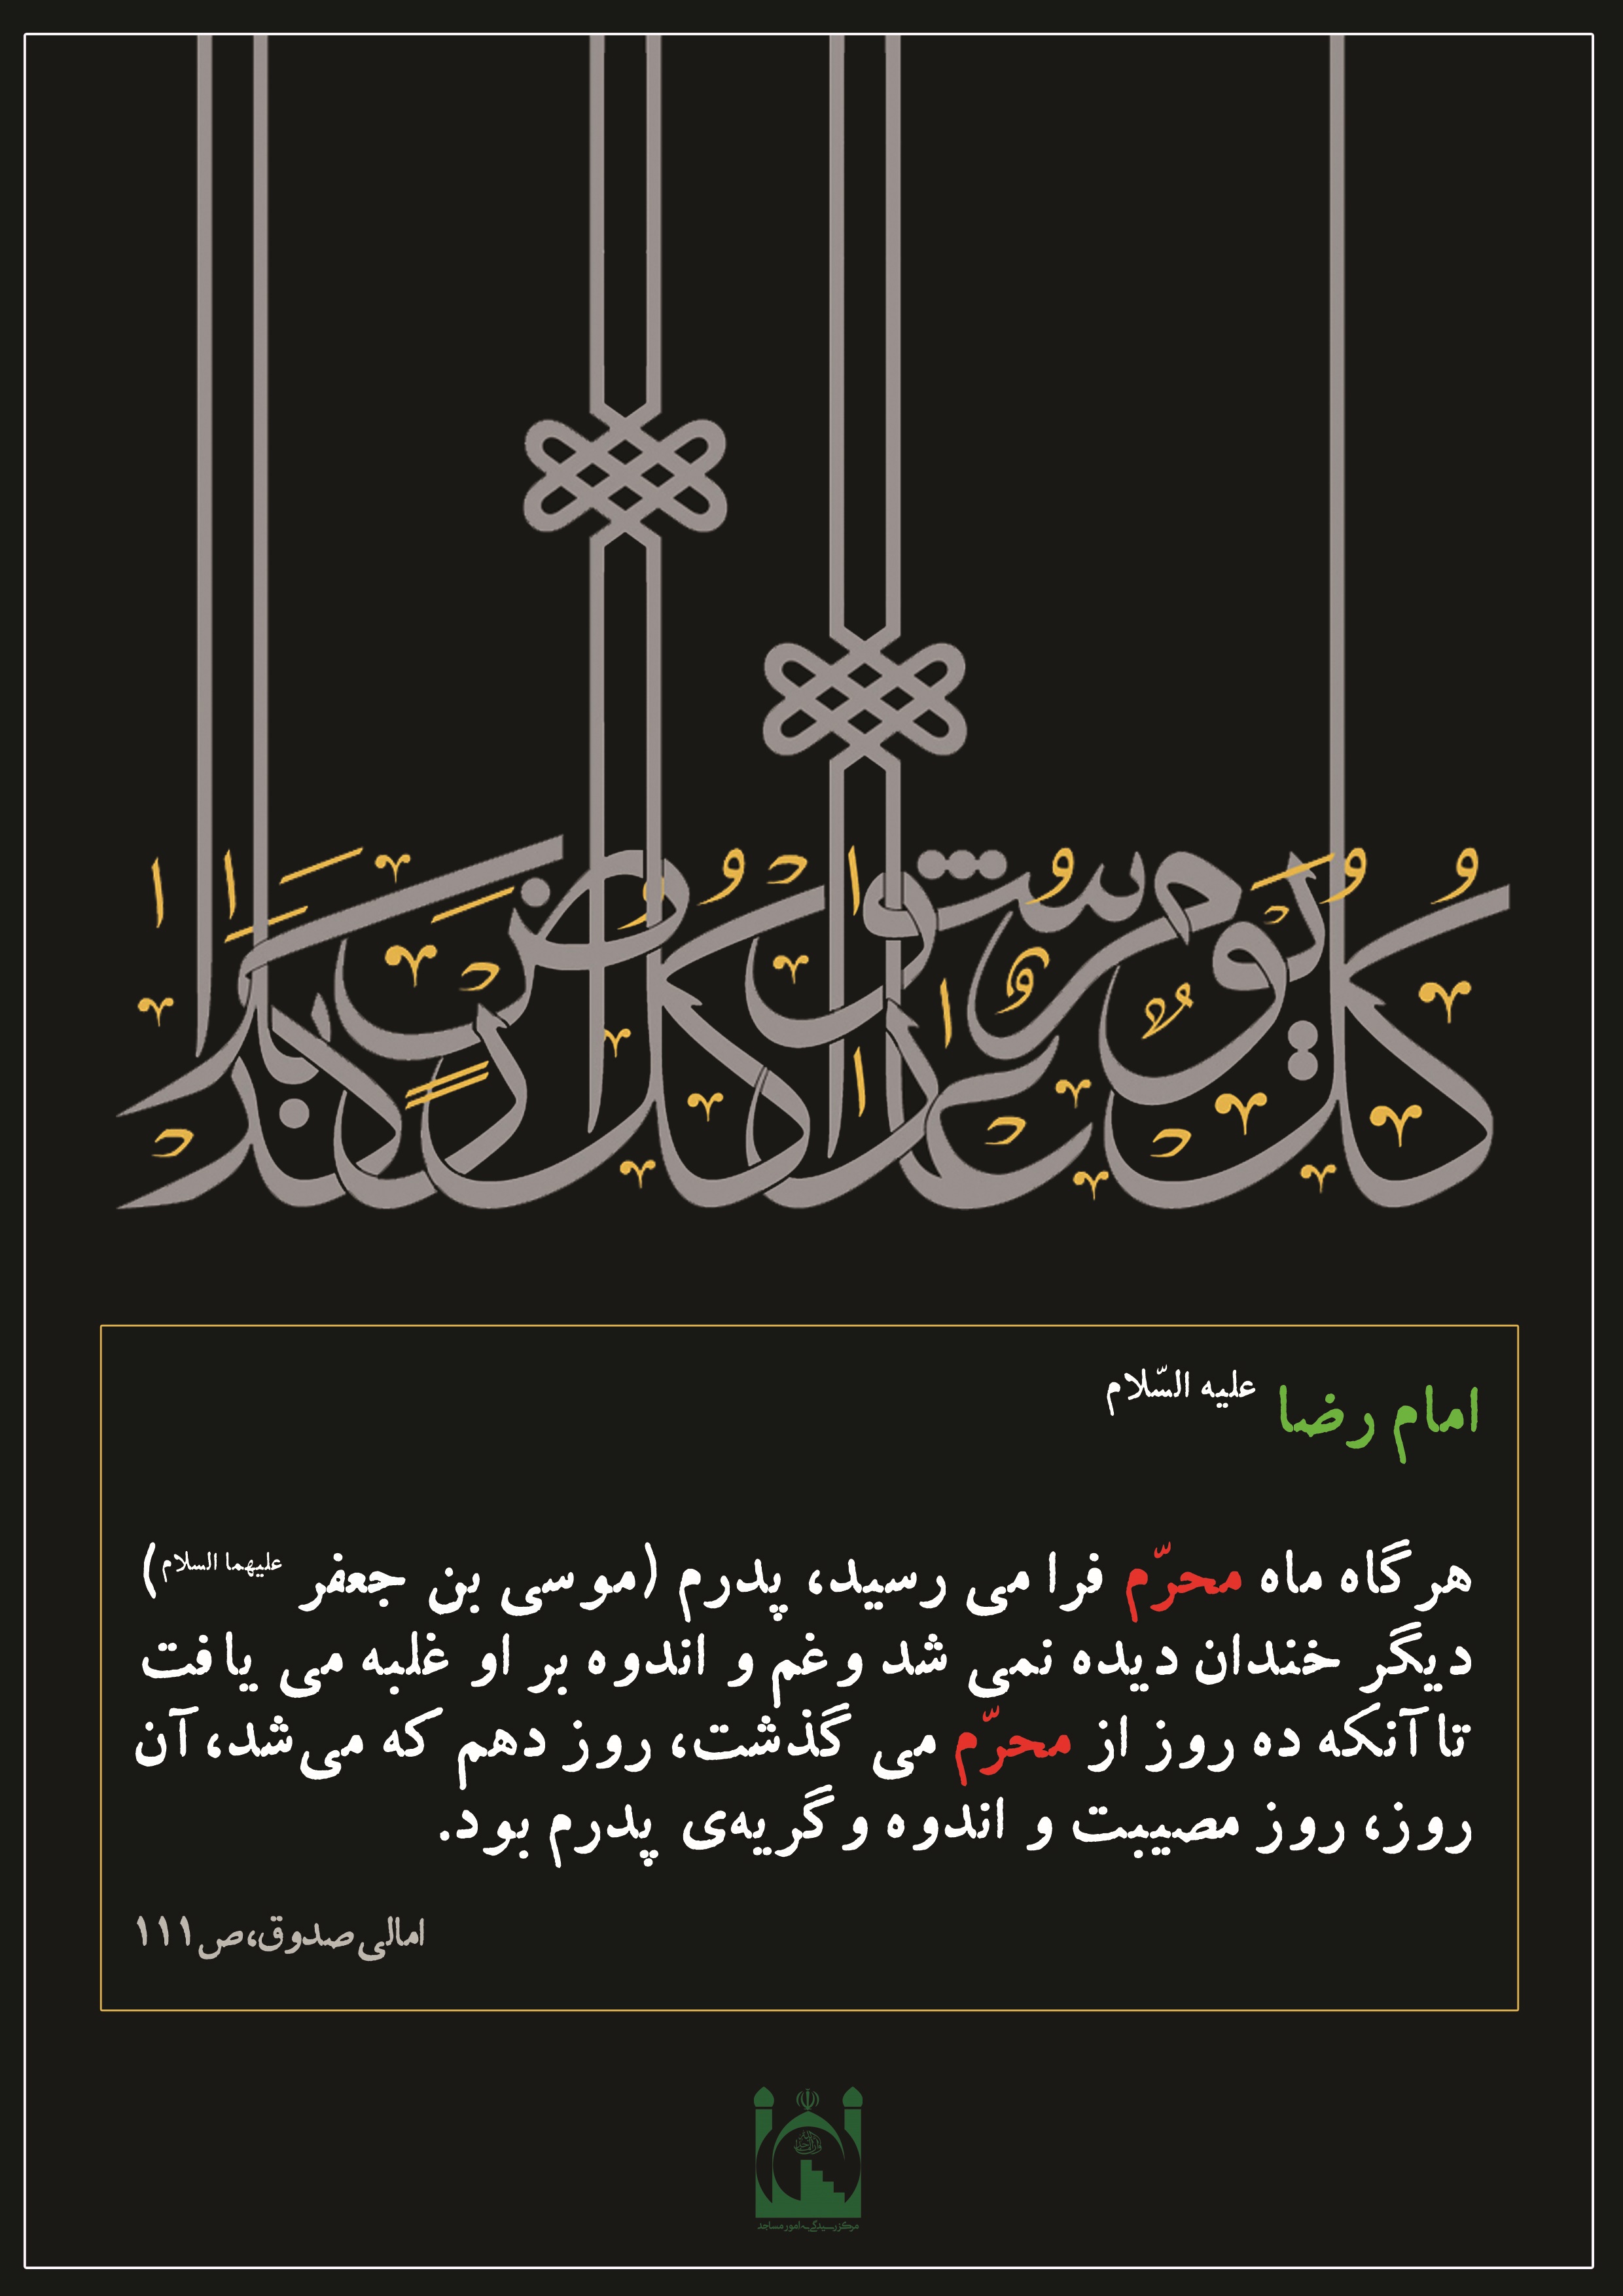 کل یوم عاشورا و کل ارض کربلا
امام رضا علیه السّلام
هرگاه ماه محرّم فرا می رسید، پدرم (موسی بن جعفر علیهما السلام)
دیگر خندان دیده نمی شد و غم و اندوه بر او غلبه می یافت
تا آنکه ده روز از محرّم می گذشت، روز دهم که می‌شد، آن
روز، روز مصیبت و اندوه و گریه‌ی پدرم بود.
امالی صدوق، ص۱۱۱
مرکز رسیدگی به امور مساجد